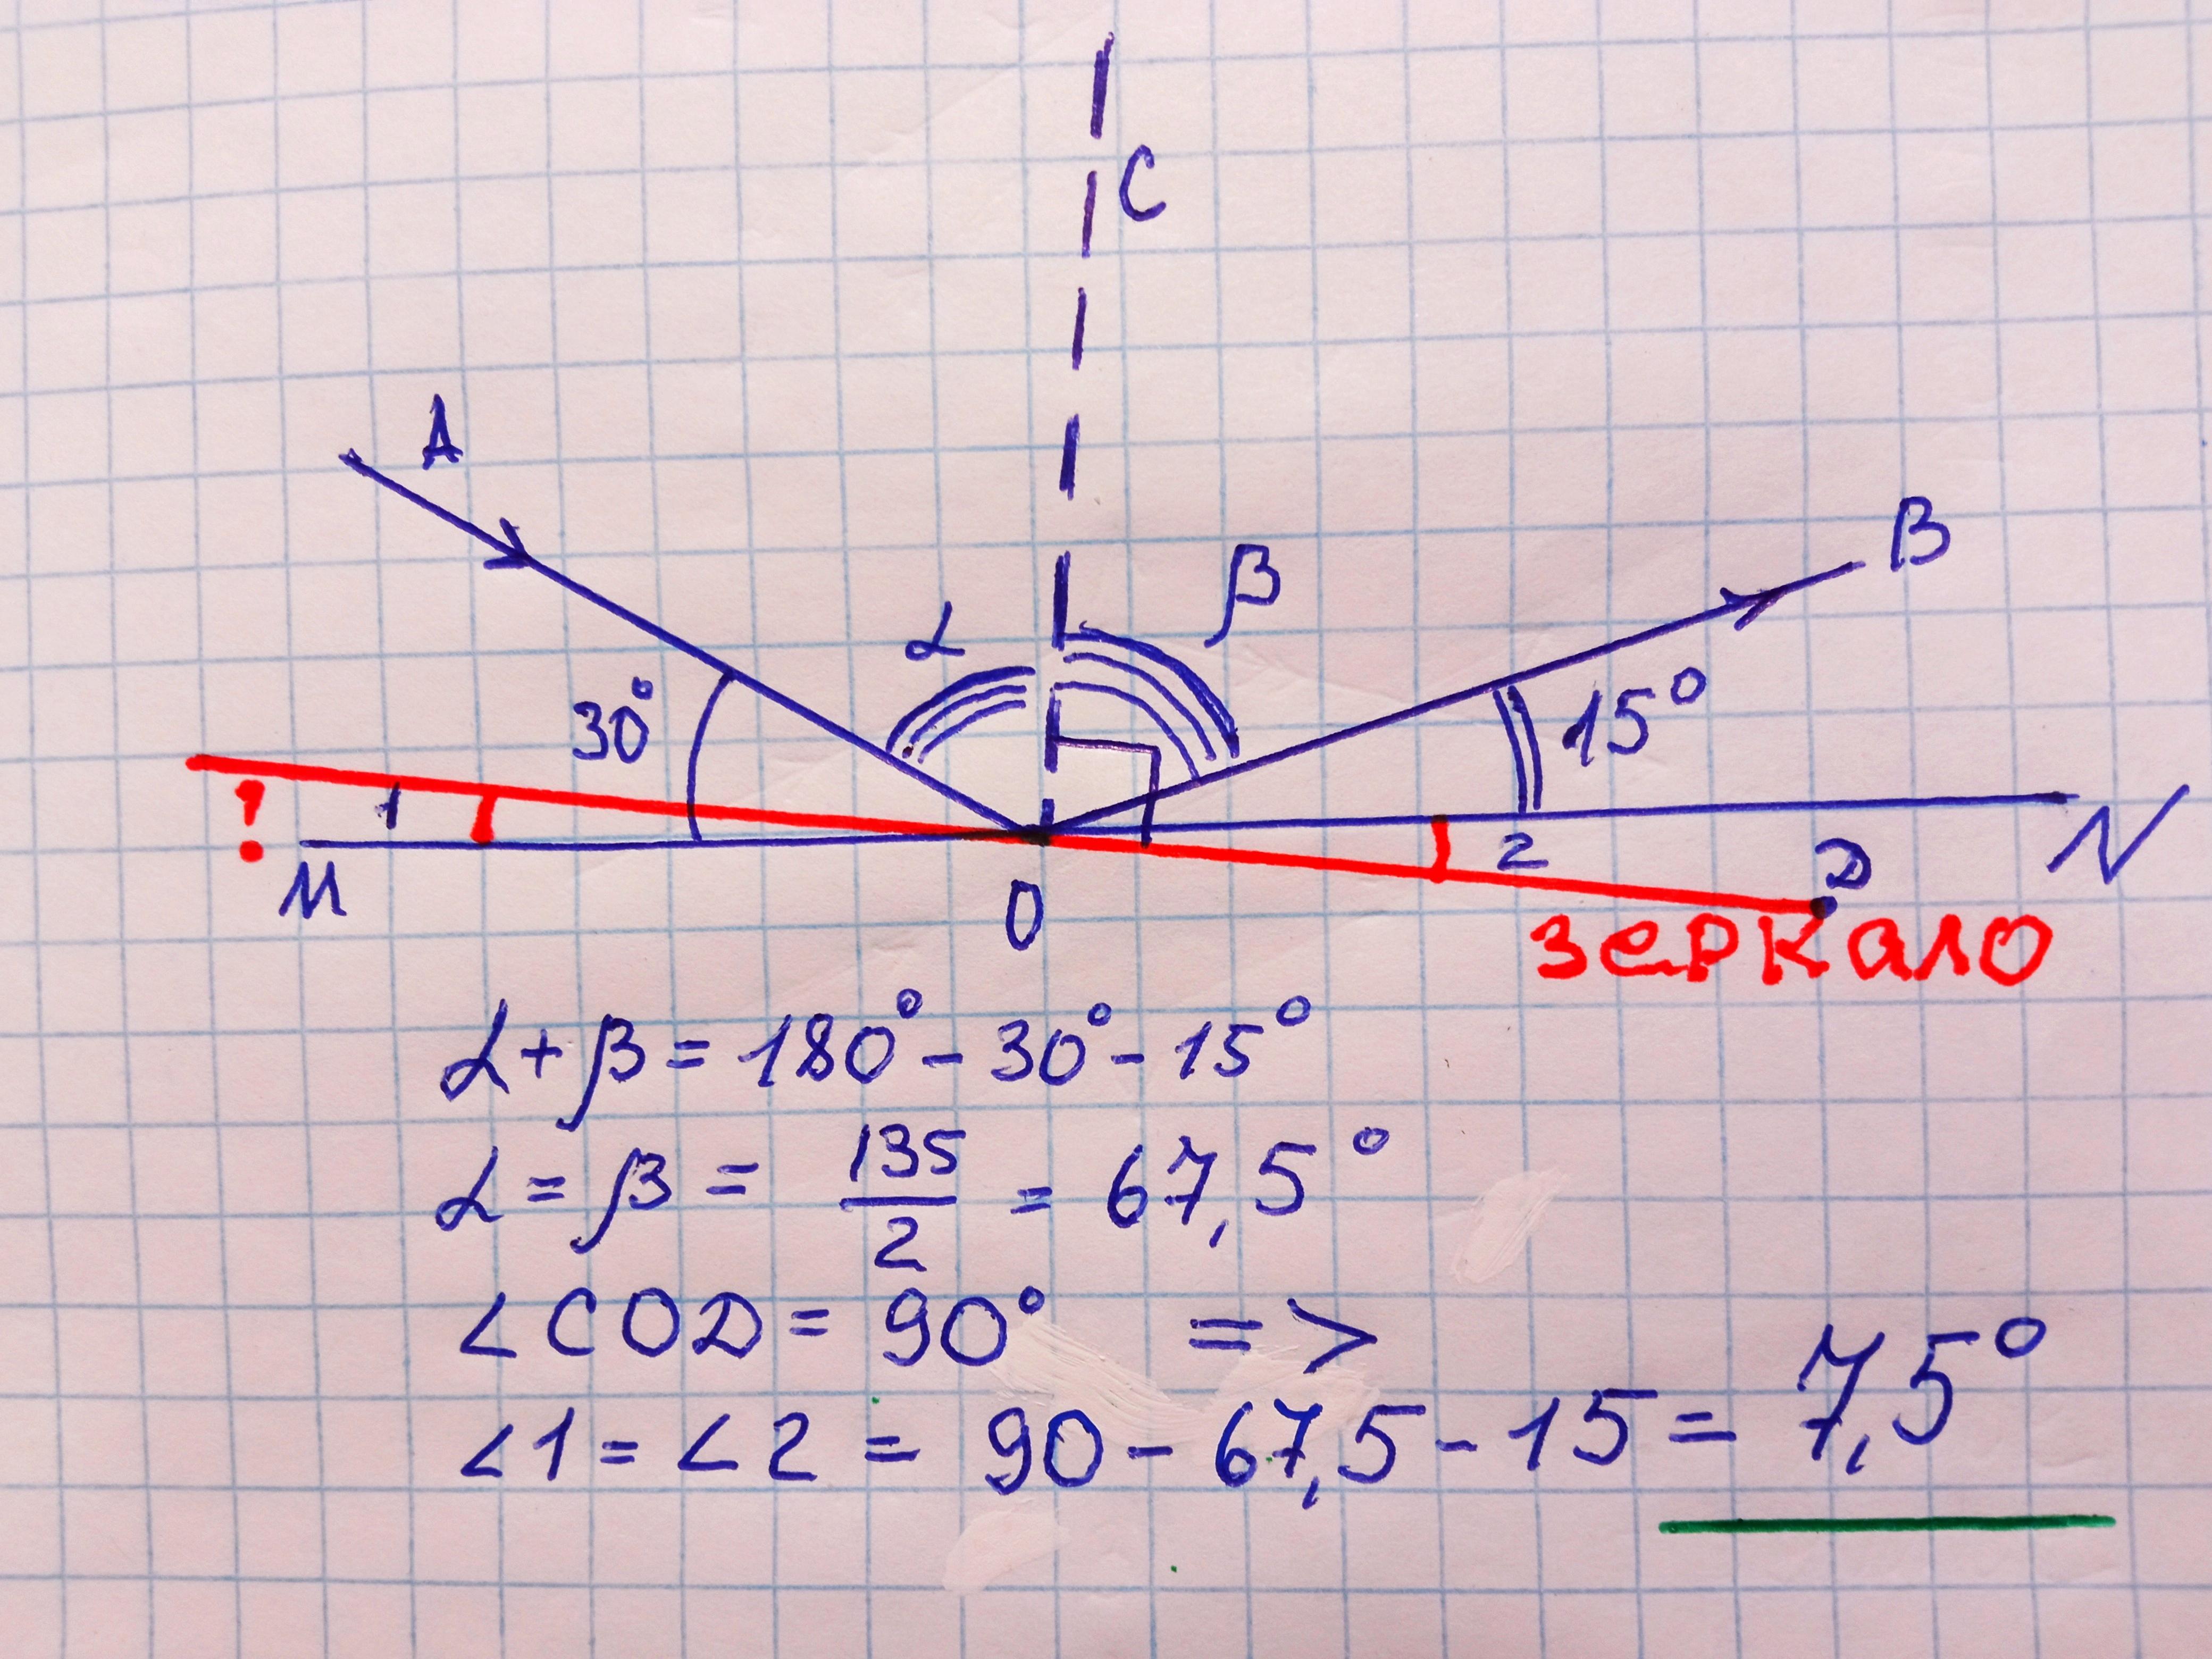 C
A
B
α
β
30°
15°
1
M
O
2
D
N
зеркало
α + β = 180° - 30° - 15°
α = β = 135/2 = 67,5°
∠COD = 90° =>
∠1 = ∠2 = 90 - 67,5 - 15 = 7,5°